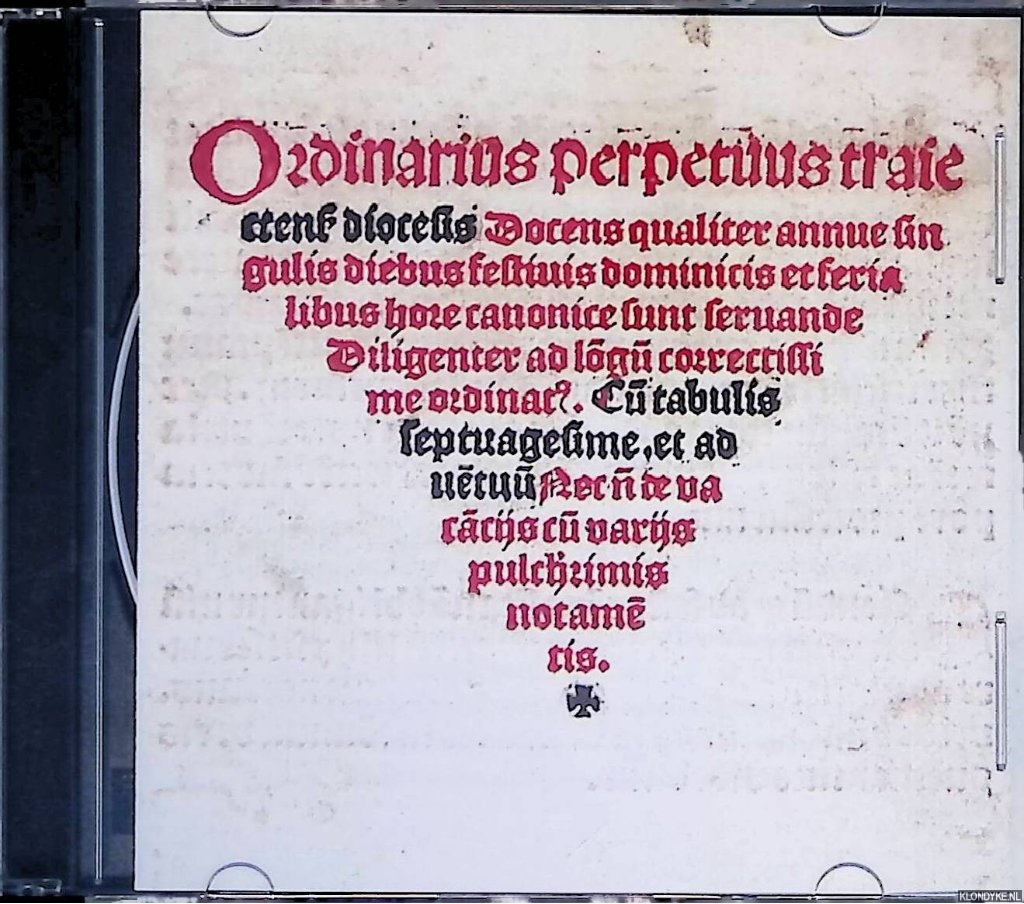 Ordinarius perpetuus traie
ctenſ dioceſis Docens qualiter annue ſin
gulis diebus feſtiuis dominicis et feria
libus hore canonice ſunt ſeruande
Diligenter ad lõgũ correctiſſi
me ordinatꝰ. Cũ tabulis
ſeptuageſime, et ad
uẽtuũ Nec ñ de va
cãcijs cũ varijs
pulchrimis
notamẽ
tis.
KLONDYKE.NL